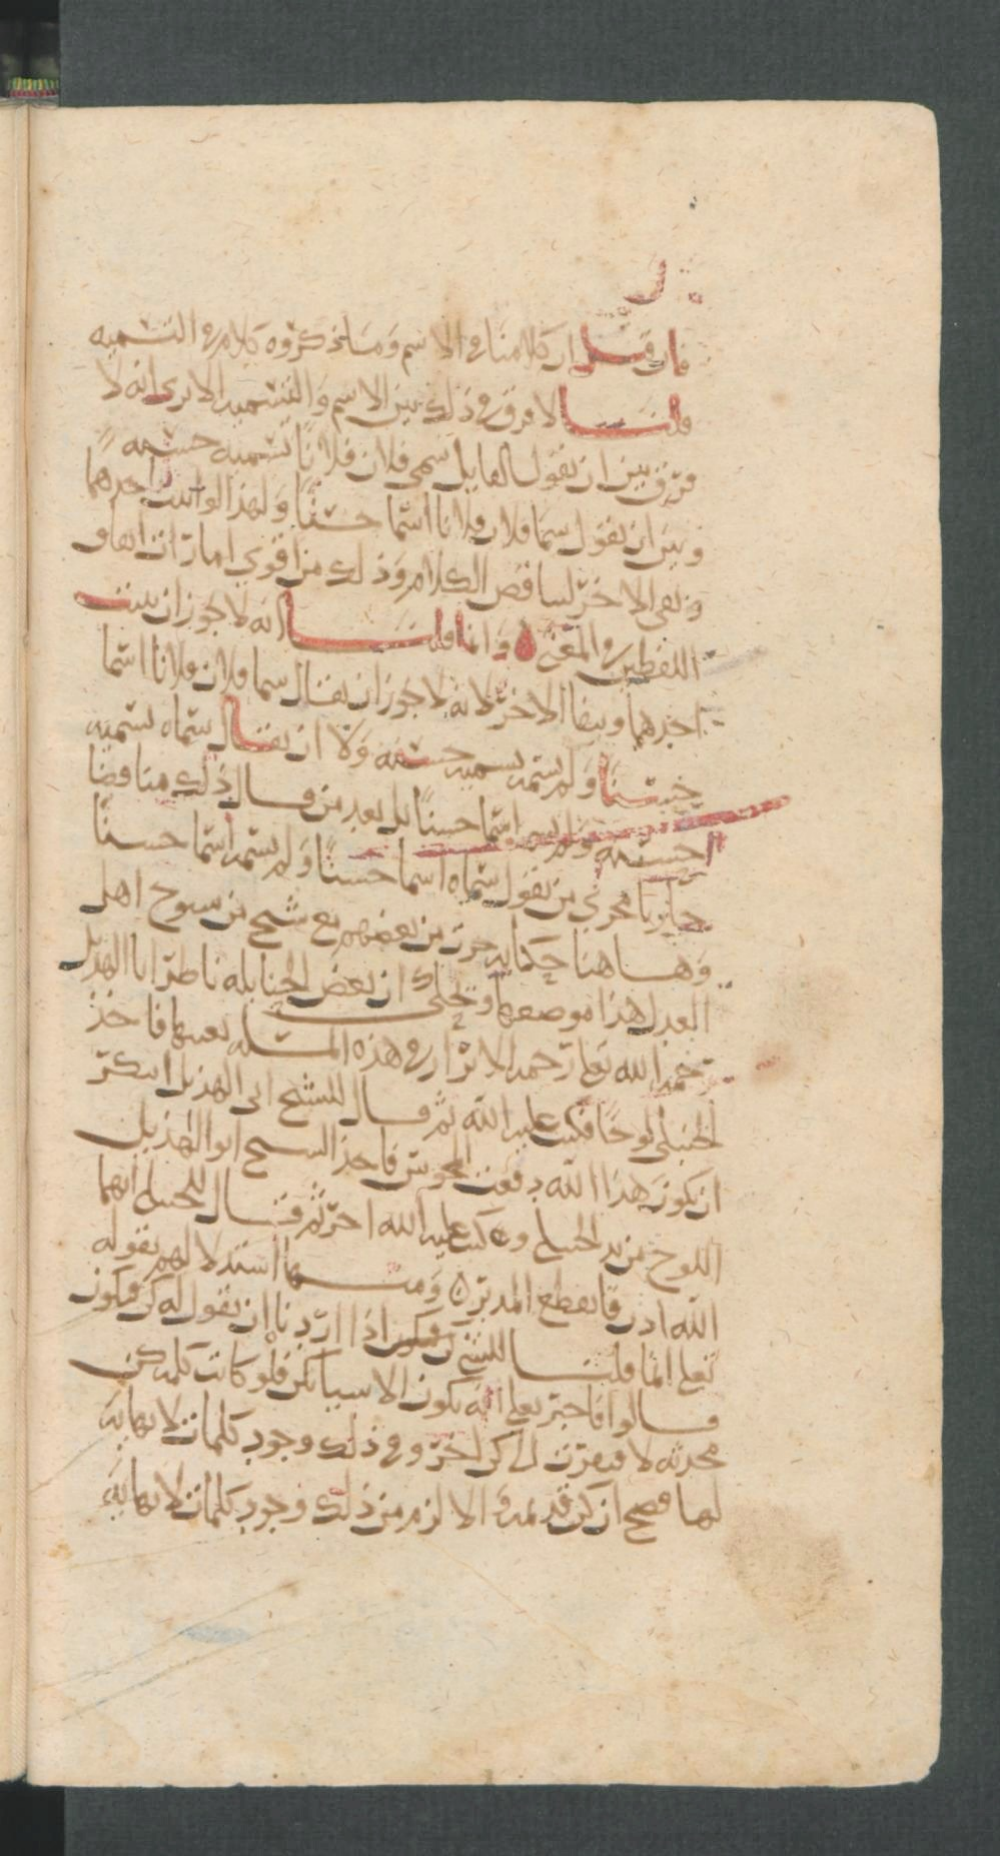 فان قيل ان كلامنا في الاسم وما ذكرتموه كلام في التسمية
قلنا لا فرق في ذلك بين الاسم والتسمية الا ترى انه لا
فرق بين ان يقول القايل سمى فلان فلانا تسمية حسنة
وبين ان يقول سما فلان فلانا اسما حسنا ولهذا لو اثبت احدهما
ونفى الاخر لتناقض الكلام وذلك من اقوى امارات اتفاق
اللفظين في المعنى وانما قلنا انه لا يجوز ان يثبت
احدهما وينفا الاخر لانه لا يجوز ان يقال سما فلان فلانا اسما
حسنا ولم يسمه تسمية حسنة ولا ان يقال سماه تسمية
حسنة ولم يسمه اسما حسنا بل يعد من قال ذلك مناقضا
جاريا مجرى من يقول سماه اسما حسنا ولم يسمه اسما حسنا
وها هنا حكاية جرت من بعضهم مع شيخ من شيوخ اهل
العدل هذا موضعها وتحكى ان بعض الحنابلة ناظر ابا الهذيل
رحمه الله تعا في هذه المسلة بعينها فاخذ
الحنبلي لوحا فكتب عليه الله ثم قال للشيخ ابى الهذيل اتنكر
ان يكون هذا الله فاخذ الشيخ ابو الهذيل
اللوح من يد الحنبلي وكتب عليه الله اخر ثم قال للحنبلي ايهما
الله اذن فانقطع المدبر ومنها استدلالهم بقوله
تعلى انما قولنا للشي اذا اردناه ان نقول له كن فيكون
قالوا فاخبر تعلى انه يكون الاشيا بكن فلو كانت كلمة كن
محدثة لافتقرت الى كن اخر وفي ذلك وجود كلمات لا نهاية
لها فصح ان كن قديمة والا لزم من ذلك وجود كلمات لا نهاية